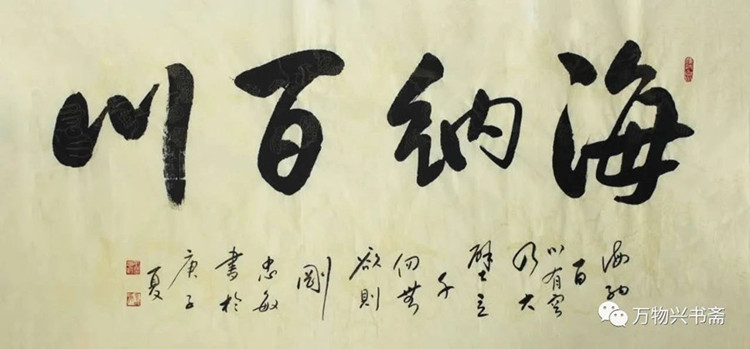 海纳百川
海纳
百
川有容
乃大
壁立
千
仞無
欲則
剛
忠敏
書於
庚子
夏
万物兴书斋